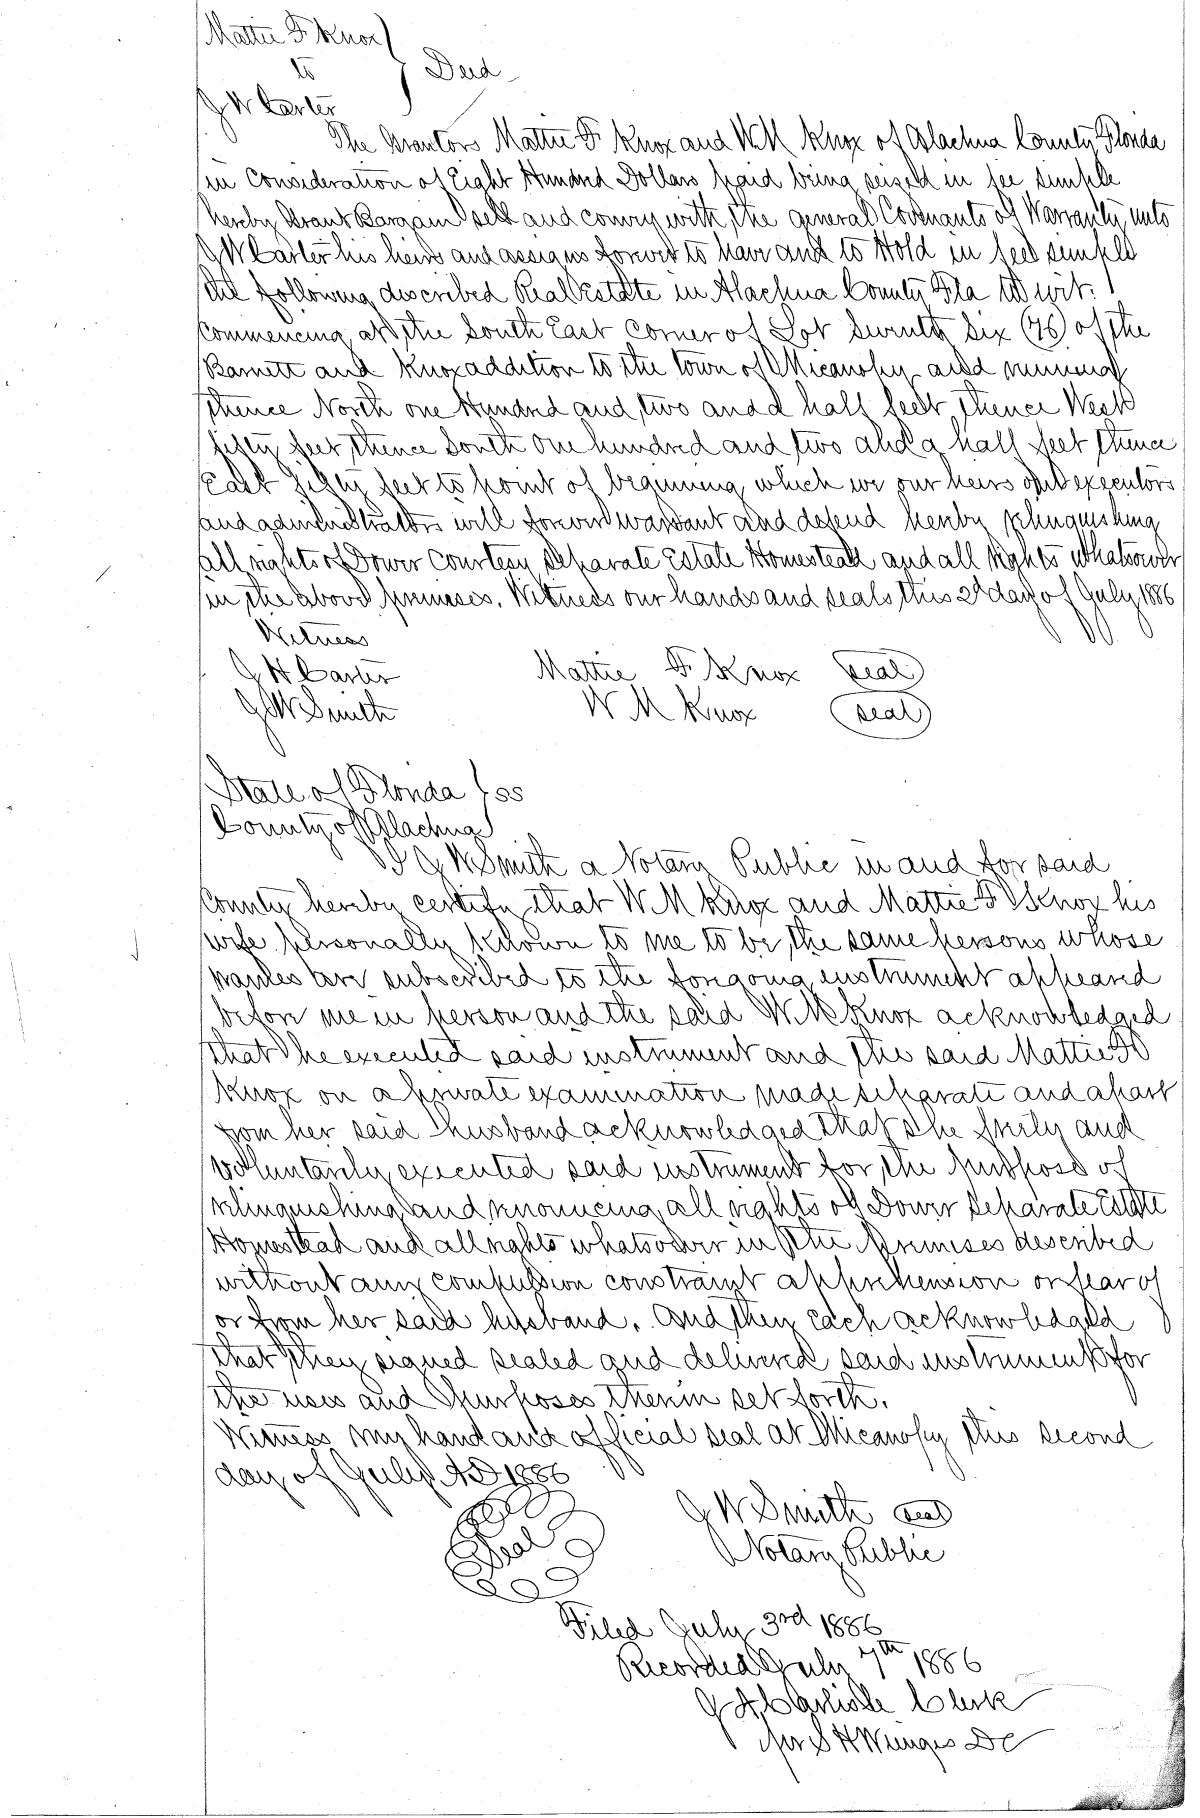 Mattie F Knox }
to } Deed
J W Carter
The Grantors Mattie F Knox and W M Knox of Alachua County Florida
in Consideration of Eight Hundred Dollars paid being seized in fee simple
hereby Grant Bargain sell and convey with the general Covenants of Warranty unto
J W Carter his heirs and assigns forever to have and to Hold in fee simple
the following described Real Estate in Alachua County Fla to wit.
Commencing at the South East Corner of Lot Seventy Six (76) of the
Barnett and Knox addition to the town of Micanopy and running
thence North one Hundred and two and a half feet thence West
fifty feet thence South one hundred and two and a half feet thence
East fifty feet to point of beginning which we our heirs executors
and administrators will forever warrant and defend hereby relinquishing
all rights of Dower Courtesy Separate Estate Homestead and all rights whatsoever
in the above premises. Witness our hands and seals this 2d day of July 1886
Witness
J H Carter Mattie F Knox (seal)
J W Smith W M Knox (seal)
State of Florida } ss
County of Alachua
I J W Smith a Notary Public in and for said
County hereby certify that W M Knox and Mattie F Knox his
wife personally known to me to be the same persons whose
names are subscribed to the foregoing instrument appeared
before me in person and the said W M Knox acknowledged
that he executed said instrument and the said Mattie F
Knox on a private examination made separate and apart
from her said husband acknowledged that she freely and
voluntarily executed said instrument for the purpose of
relinquishing and renouncing all rights of Dower Separate Estate
Homestead and all rights whatsoever in the premises described
without any compulsion constraint apprehension or fear of
or from her said husband. And they Each acknowledged
that they signed sealed and delivered said instrument for
the uses and purposes therein set forth.
Witness my hand and official seal at Micanopy this second
day of July AD 1886
Seal J W Smith (seal)
Notary Public
Filed July 3rd 1886
Recorded July 7th 1886
J A Carlisle Clerk
per S H Wienges DC